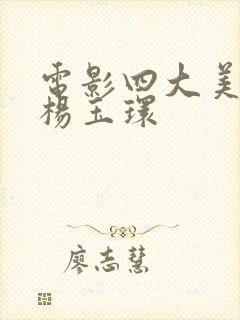 電影四大美
楊玉環
廖志慧